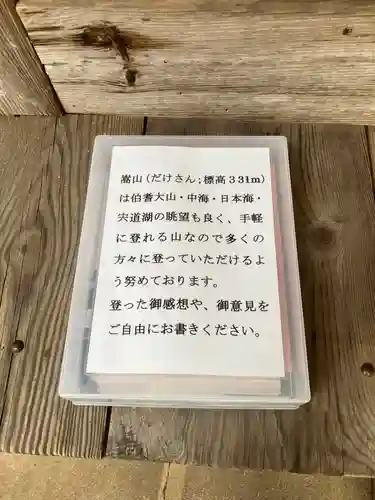 嵩山（だけさん；標高３３1m）
は伯耆大山・中海・日本海・
宍道湖の眺望も良く、手軽
に登れる山なので多くの
方々に登っていただけるよ
う努めております。
登った御感想や、御意見を
ご自由にお書きください。